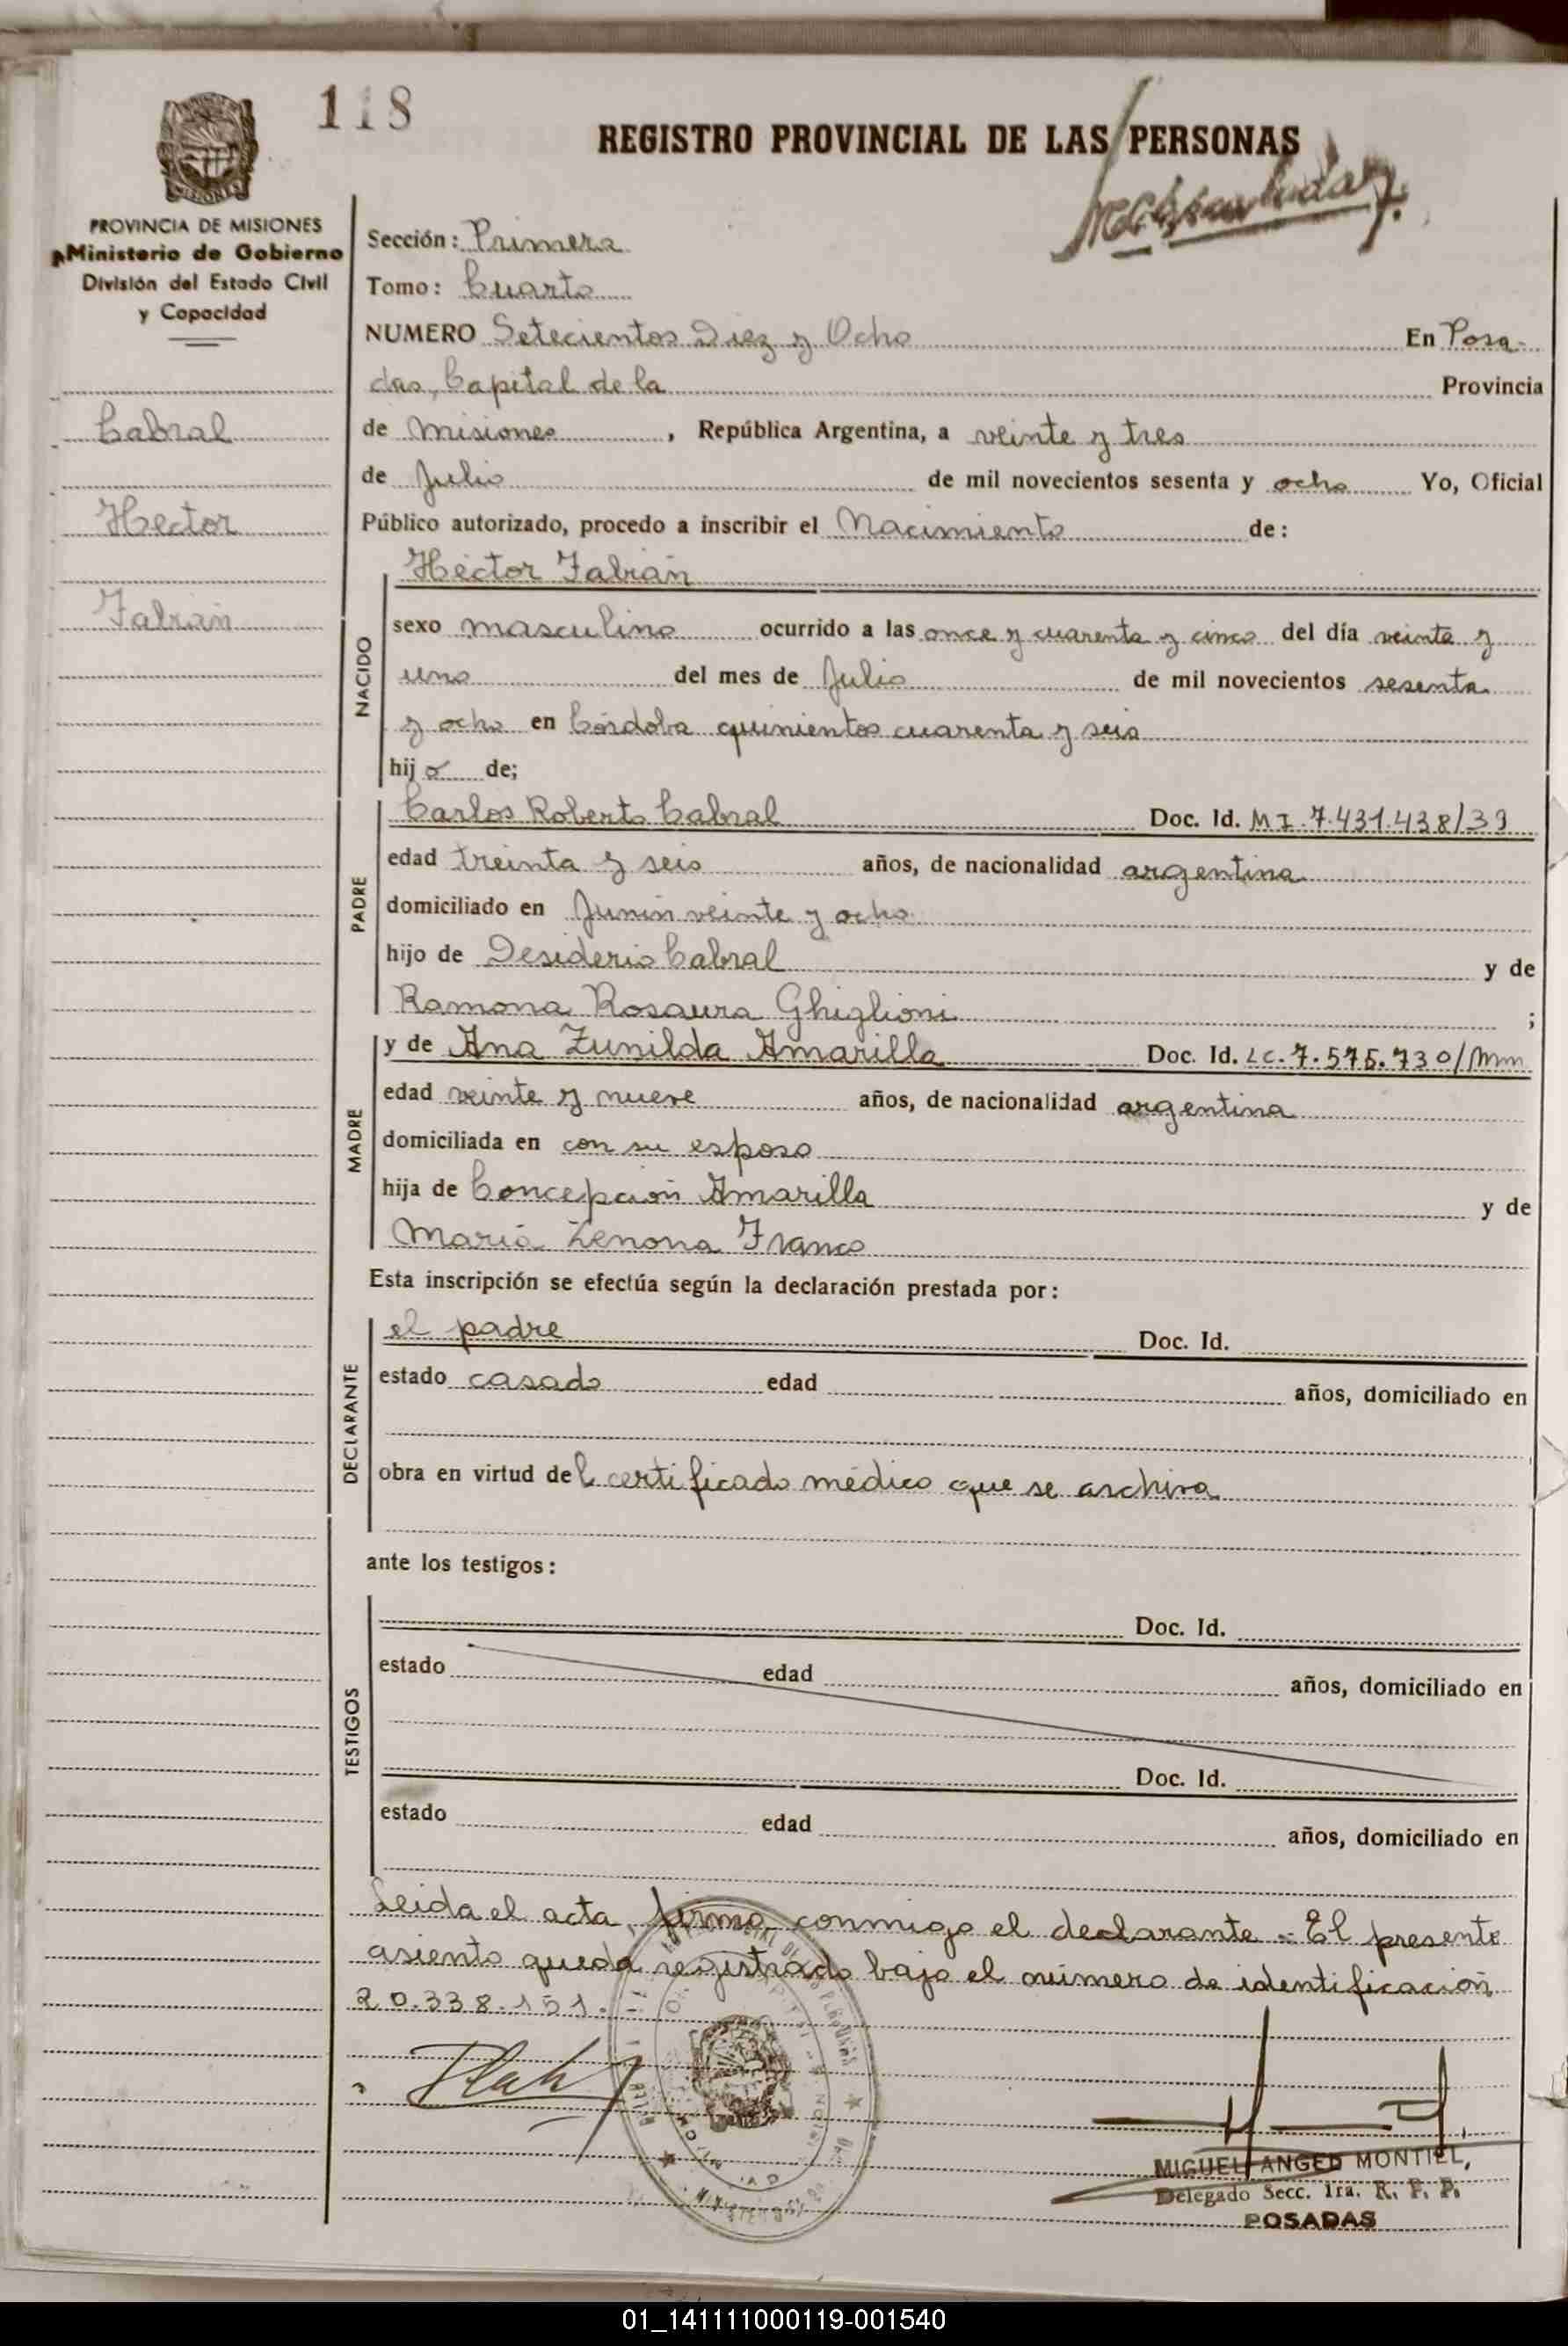 118
REGISTRO PROVINCIAL DE LAS PERSONAS
PROVINCIA DE MISIONES
Ministerio de Gobierno
División del Estado Civil
y Capacidad
Cabral
Hector
Fabián
Sección: Primera
Tomo: Cuarto
NUMERO Setecientos Diez y Ocho En Posa-
das, Capital de la Provincia
de Misiones, República Argentina, a veinte y tres
de Julio de mil novecientos sesenta y ocho Yo, Oficial
Público autorizado, procedo a inscribir el Nacimiento de:
NACIDO
Héctor Fabián
sexo masculino ocurrido a las once y cuarenta y cinco del día veinte y
uno del mes de Julio de mil novecientos sesenta
y ocho en Córdoba quinientos cuarenta y seis
hijo de;
PADRE
Carlos Roberto Cabral Doc. Id. MI. 7.431.438/39
edad treinta y seis años, de nacionalidad argentina
domiciliado en Junín veinte y ocho
hijo de Desiderio Cabral y de
Ramona Rosaura Ghiglioni ;
MADRE
y de Ana Zunilda Amarilla Doc. Id. LC. 7.575.730/Mn
edad veinte y nueve años, de nacionalidad argentina
domiciliada en con su esposo
hija de Concepción Amarilla y de
María Zenona Franco
Esta inscripción se efectúa según la declaración prestada por:
DECLARANTE
el padre Doc. Id.
estado casado edad años, domiciliado en
obra en virtud del certificado médico que se archiva
ante los testigos:
TESTIGOS
Doc. Id.
estado edad años, domiciliado en
Doc. Id.
estado edad años, domiciliado en
Leida el acta, firma conmigo el declarante. El presente
asiento queda registrado bajo el número de identificación
20.338.151.
MIGUEL ANGEL MONTIEL,
Delegado Secc. 1ra. R. P. P.
POSADAS
01_141111000119-001540